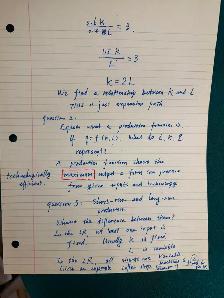 K
= 3
L
K = 2L
We find a relationship between K and L
This is just expansion path
Question 2:
Explain what a production function is
If q = f(K, L). What do L, K, q
represent?
A production function shows the
technologically
efficient.
maximum output a firm can produce
from given inputs and technology
Question 3: Short-run and long-run
production
What's the difference between them?
In the SR, at least one input is
fixed. Usually K is fixed,
L is variable
In the LR, all inputs are variable